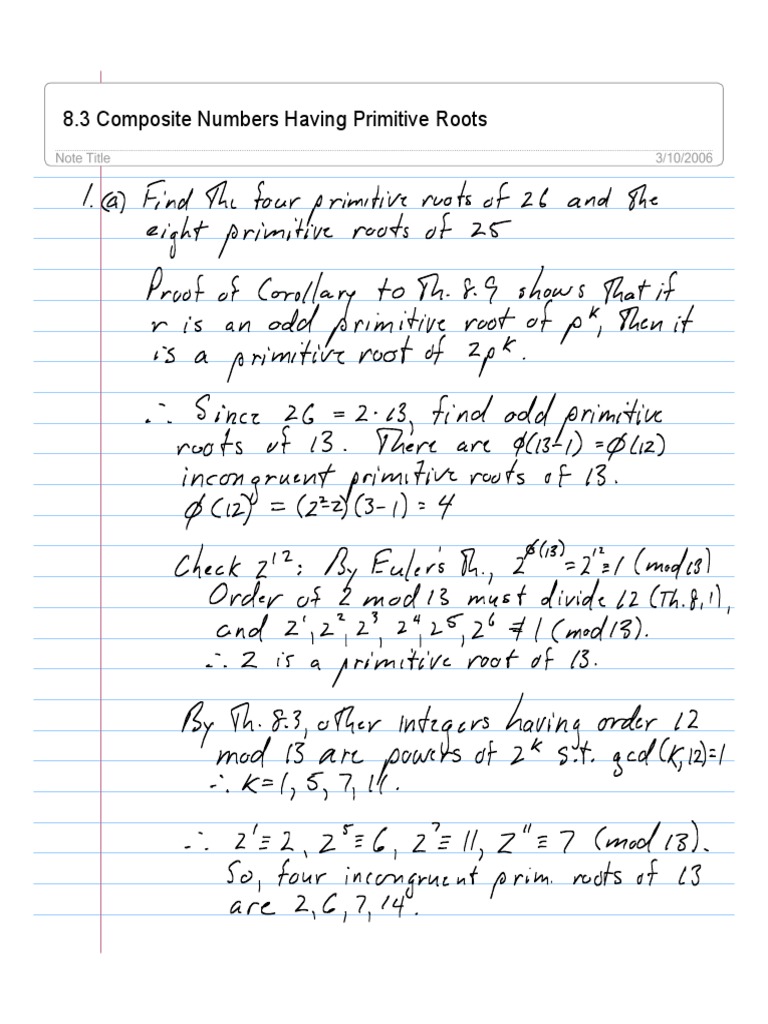 8.3 Composite Numbers Having Primitive Roots
Note Title 3/10/2006
1. (a) Find the four primitive roots of 26 and the
eight primitive roots of 25
Proof of Corollary to Th. 8.9 shows that if
r is an odd primitive root of p^k, then it
is a primitive root of 2p^k.
∴ Since 26 = 2·13, find odd primitive
roots of 13. There are φ(13-1) = φ(12)
incongruent primitive roots of 13.
φ(12) = (2²-2)(3-1) = 4
Check 2^12: By Euler's Th., 2^φ(13) = 2^12 ≡ 1 (mod 13)
Order of 2 mod 13 must divide 12 (Th. 8.1),
and 2^1, 2^2, 2^3, 2^4, 2^5, 2^6 ≢ 1 (mod 13).
∴ 2 is a primitive root of 13.
By Th. 8.3, other integers having order 12
mod 13 are powers of 2^k s.t. gcd(k,12)=1
∴ k=1, 5, 7, 11.
∴ 2^1 ≡ 2, 2^5 ≡ 6, 2^7 ≡ 11, 2^11 ≡ 7 (mod 13).
So, four incongruent prim. roots of 13
are 2, 6, 7, 14.